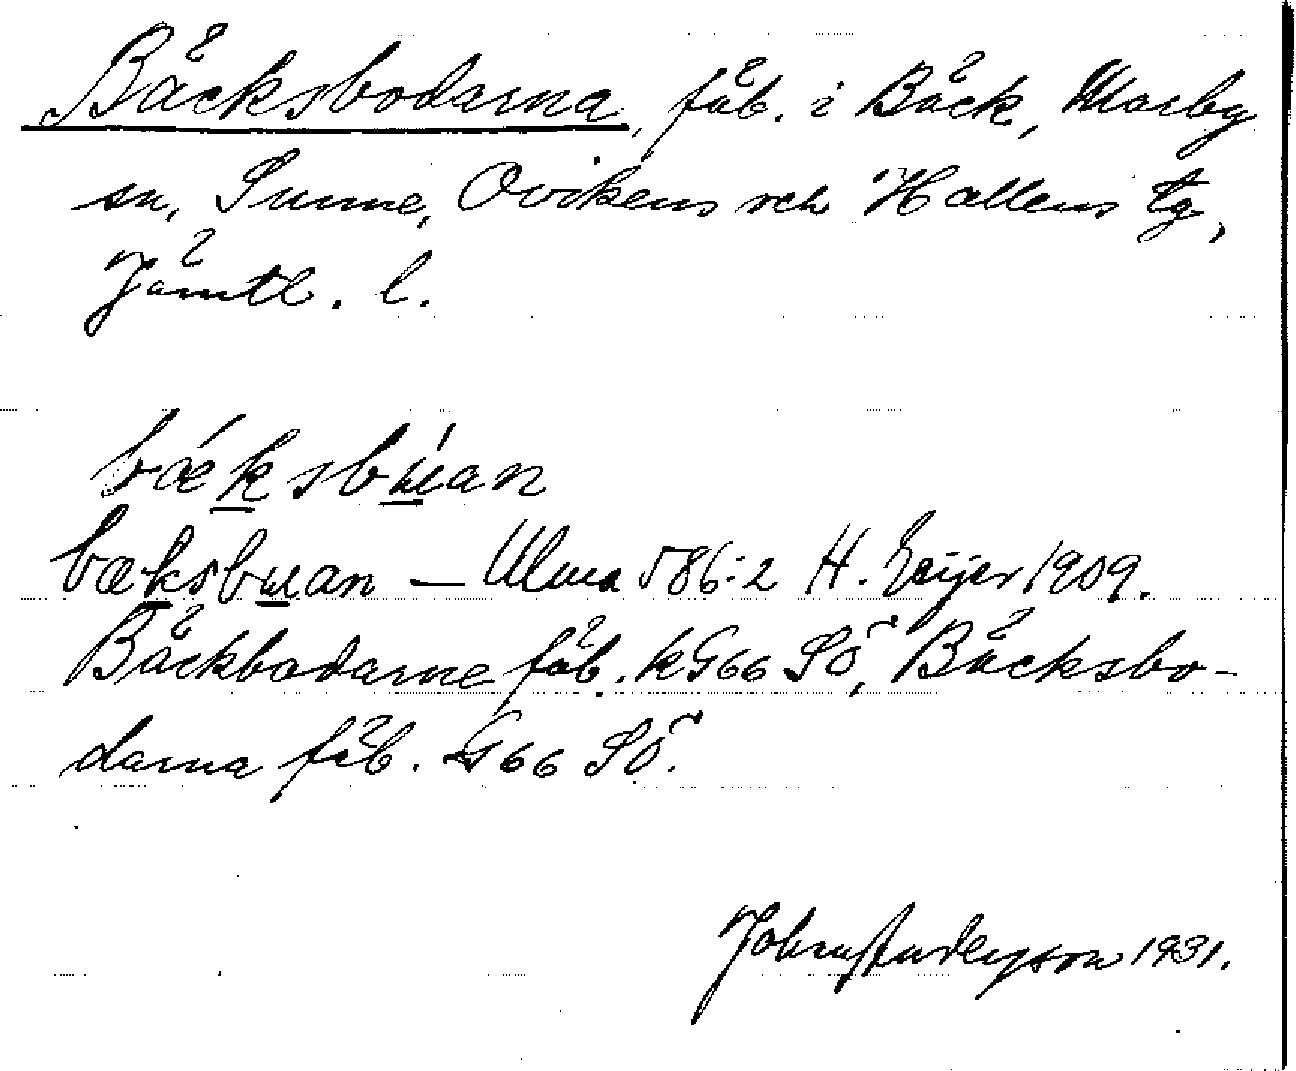 Bäcksbodarna, fäb. i Bäck, Marby
sn, Sunne, Ovikens och Hallens tg,
Jämtl. l.
bǽksbúan
bæksbuan — Ulma 586:2 H. Geijer 1909.
Bäckbodarne fäb. kG66 SÖ, Bäcksbo-
darna fäb. G66 SÖ.
John Anderson 1931.